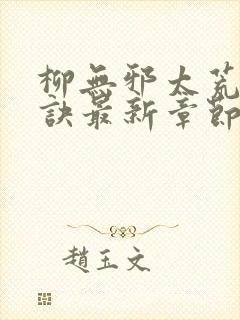 柳無邪太荒
訣最新章節
趙玉文